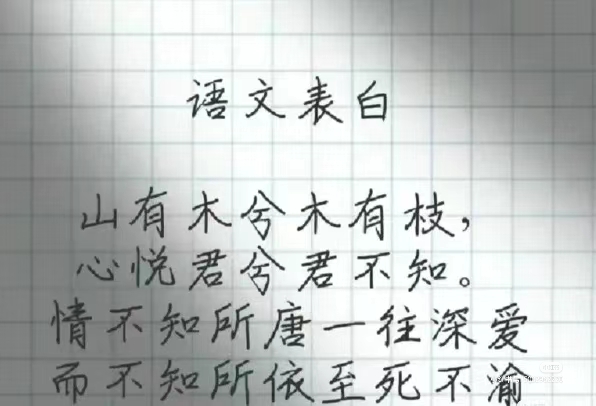 语文表白
山有木兮木有枝，
心悦君兮君不知。
情不知所唐一往深爱
而不知所依至死不渝